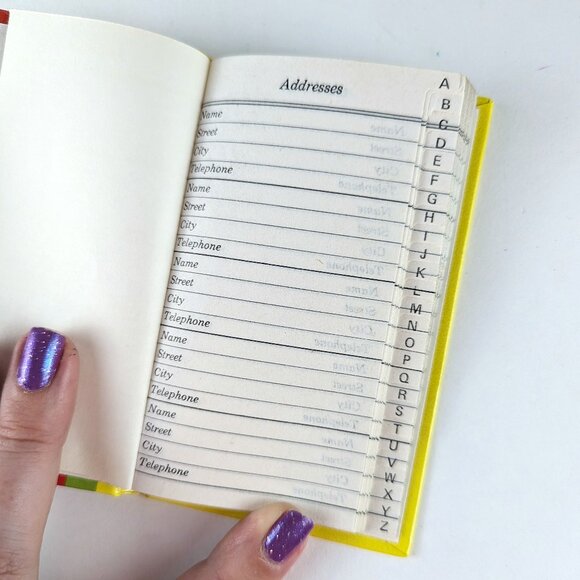 Addresses
Name
Street
City
Telephone
Name
Street
City
Telephone
Name
Street
City
Telephone
Name
Street
City
Telephone
Name
Street
City
Telephone
A
B
C
D
E
F
G
H
I
J
K
L
M
N
O
P
Q
R
S
T
U
V
W
X
Y
Z